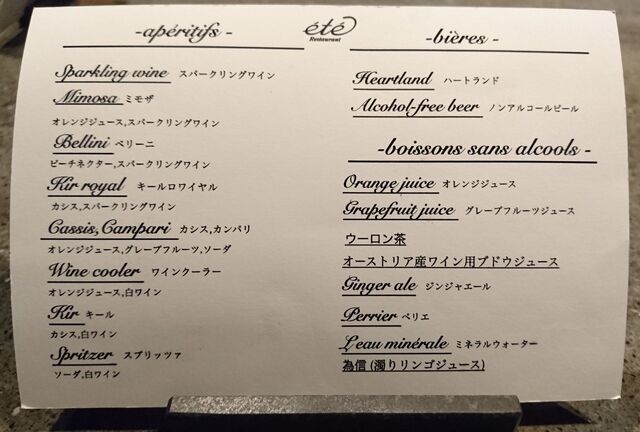 -apéritifs-
Sparkling wine スパークリングワイン
Mimosa ミモザ
オレンジジュース,スパークリングワイン
Bellini ベリーニ
ピーチネクター,スパークリングワイン
Kir royal キールロワイヤル
カシス,スパークリングワイン
Cassis,Campari カシス,カンパリ
オレンジジュース,グレープフルーツ,ソーダ
Wine cooler ワインクーラー
オレンジジュース,白ワイン
Kir キール
カシス,白ワイン
Spritzer スプリッツァ
ソーダ,白ワイン
été
Restaurant
-bières-
Heartland ハートランド
Alcohol-free beer ノンアルコールビール
-boissons sans alcools-
Orange juice オレンジジュース
Grapefruit juice グレープフルーツジュース
ウーロン茶
オーストリア産ワイン用ブドウジュース
Ginger ale ジンジャエール
Perrier ペリエ
L'eau minérale ミネラルウォーター
為信(濁りリンゴジュース)